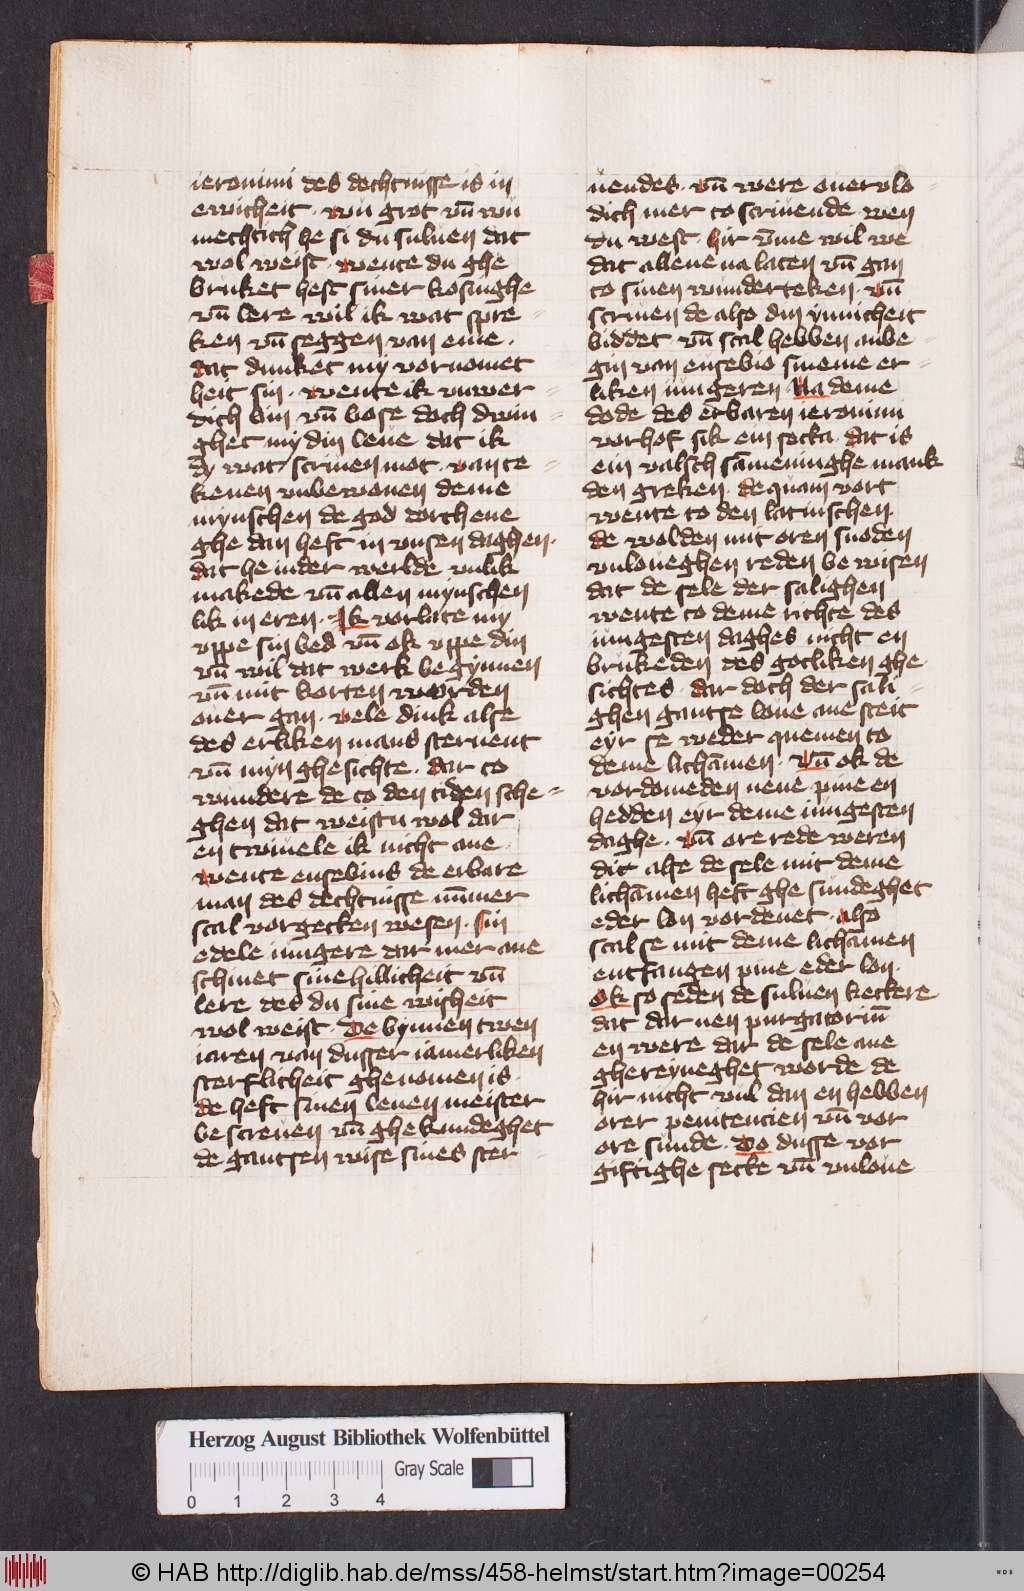 ieronimi des dechtnisse is in
ewicheit · wu grot vn̄ wu
mechtich he si du suluen dat
wol weist · wente du ghe
bruket hest siner kosinghe
vn̄ lere wil ik wat spre
ken vn̄ seggen van eme ·
dat dunket my vornomet
heit sin · wente ik vnwer
dich bin vn̄ bose doch dwin
ghet my din leue dat ik
dy wat scriuen mot · van te
kenen vnbewonen deme
mynschen de god vorthene
ghe dan heft in vnsen daghen ·
dat he in der werlde vnlik
makede vn̄ allen mynschen
lik in eren · Ik vorlate my
vppe sin bed vn̄ ok vppe din
vn̄ wil dat werk begynnen
vn̄ mit korten worden
ouer gan · vele dink alse
des erliken mans steruent
vn̄ myn ghesichte · dar to
wundere de to den tiden sche
ghen dat weistu wol dar
en twiuele ik nicht ane ·
wente eusebius de erbare
man des dechtnisse ūmer
scal vorgetken wesen · sin
edele iungere dar mer ane
schinet sine hillicheit vn̄
lere des du sine wisheit
wol weist · De bynnen twen
iaren van dusser iamerliken
sterflicheit ghenomen is ·
de heft sinen leuen meister
bescreuen vn̄ ghekundeghet
de gantsen wise sines ster
uendes · vn̄ were ouerulo
dich mer to scriuende wen
du west · hir v̄me wil we
dat allene na laten vn̄ gan
to sinen wunderteken · vn̄
scriuen de also din ynnicheit
biddet vn̄ scal hebben anbe
gin van eusebio sineme er
liken iungeren · Na deme
dode des erbaren ieronimi
vorhof sik ein secta · dat is
ein valsch sāmeninghe mank
den greken · de quam vort
wente to den latinschen
de wolden mit oren snoden
vnloueghen reden bewisen
dat de sele der salighen
wente to deme richte des
iungesten daghes nicht en
brukeden des gotliken ghe
sichtes · dar doch der sali
ghen gantse loue ane steit
eyr se weder quemen to
deme lichāmen · Vn̄ ok de
vordomeden nene pine en
hedden eyr deme iungesten
daghe · vn̄ ore rede weren
dit alse de sele mit deme
lichāmen heft ghe sundeghet
eder lon vordenet · also
scal se mit deme lichāmen
entfangen pine eder lon ·
Ok so seden de suluen kettere
dat dar nen purgatoriū
en were dar de sele ane
ghereyneghet worde de
hir nicht vul dan en hebben
orer penitencien vn̄ vor
ore sunde · Do dusse vor
giftighe secte vn̄ vnloue
Herzog August Bibliothek Wolfenbüttel
Gray Scale
0 1 2 3 4
© HAB http://diglib.hab.de/mss/458-helmst/start.htm?image=00254